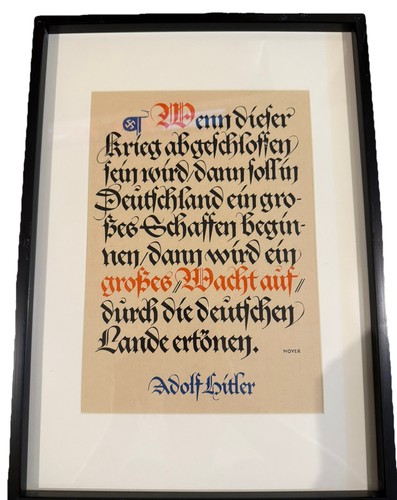 Wenn dieser
Krieg abgeschlossen
sein wird dann soll in
Deutschland ein gro-
ßes Schaffen begin-
nen/dann wird ein
großes „Wacht auf“
durch die deutschen
Lande ertönen.
HOYER
Adolf Hitler